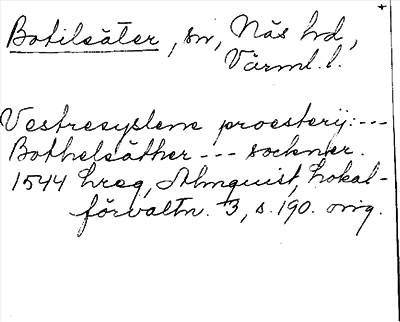 Botilsäter, sn, Näs hd,
Värml. l.
Vestresyslene proesterij: ---
Bothelsäther --- socknær.
1544 hreg, Almquist, Lokal-
förvaltn. 3, s. 190. orig.